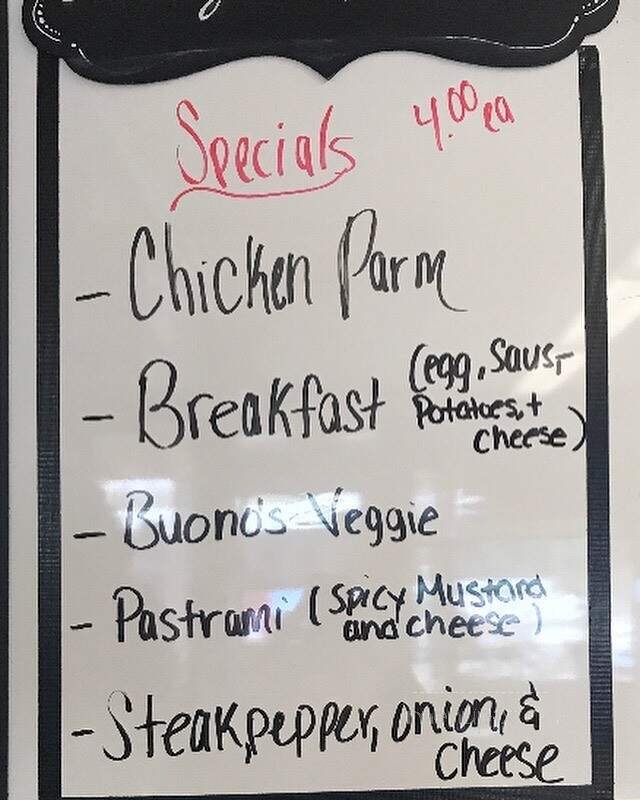 Specials 4.00 ea
- Chicken Parm
- Breakfast (egg, Saus,
Potatoes, +
cheese)
- Buono's Veggie
- Pastrami (Spicy Mustard
and cheese)
- Steak, pepper, onion, &
cheese